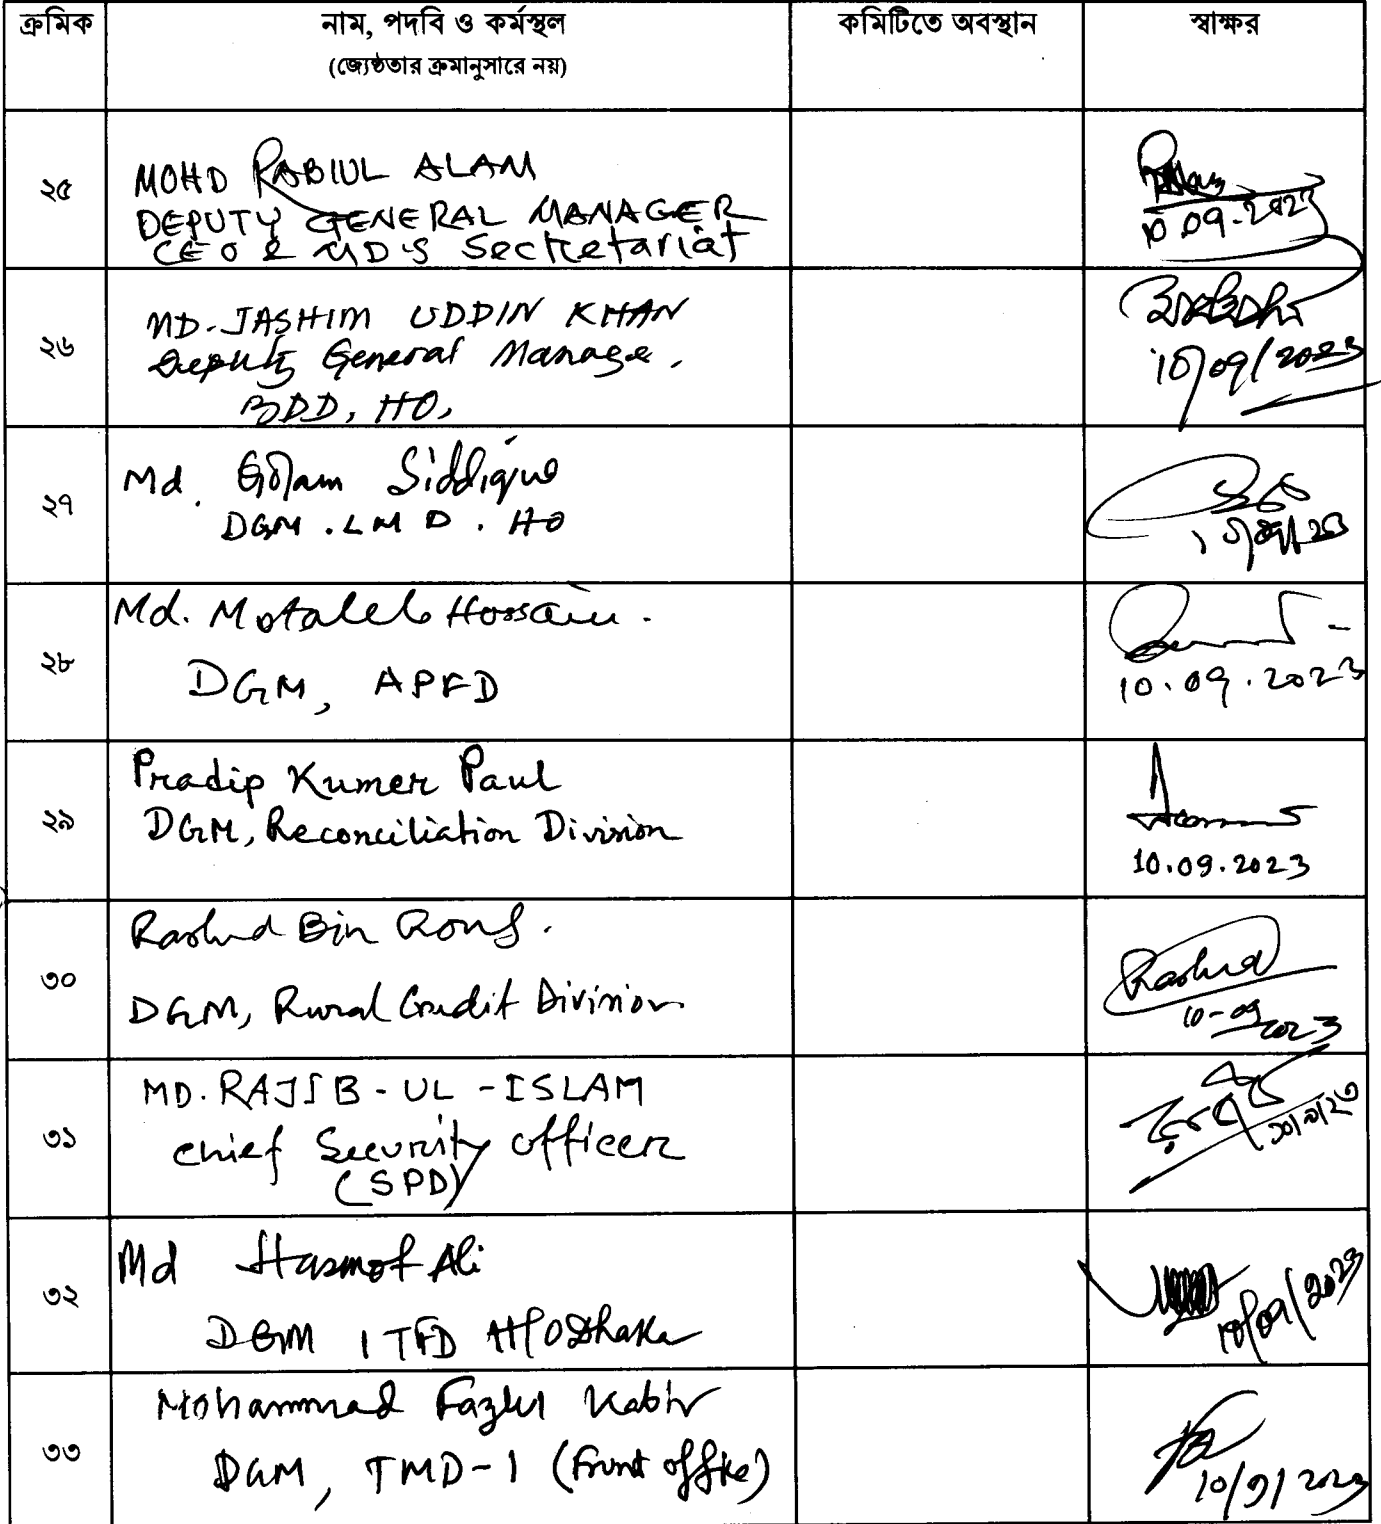 ক্রমিক নাম, পদবি ও কর্মস্থল কমিটিতে অবস্থান স্বাক্ষর
(জ্যেষ্ঠতার ক্রমানুসারে নয়)
২৫
MOHD RABIUL ALAM
DEPUTY GENERAL MANAGER
CEO & MD'S Secretariat
10 09-2023
২৬
MD. JASHIM UDDIN KHAN
Deputy General Manage.
BDD, HO,
10/09/2023
২৭
Md. Golam Siddique
DGM. LMD. HO
২৮
Md. Motaleb Hossain.
DGM, APFD
10.09.2023
২৯
Pradip Kumer Paul
DGM, Reconciliation Division
10.09.2023
৩০
Rashid Bin Rouf.
DGM, Rural Credit Division
Rashid
10-09-2023
৩১
MD. RAJIB-UL-ISLAM
Chief Security officer
(SPD)
১০/৯/২৩
৩২
Md Hasmot Ali
DGM ITFD HO Dhaka
10/09/2023
৩৩
Mohammad Fazlul Kabir
DGM, TMD-1 (Front office)
10/9/2023